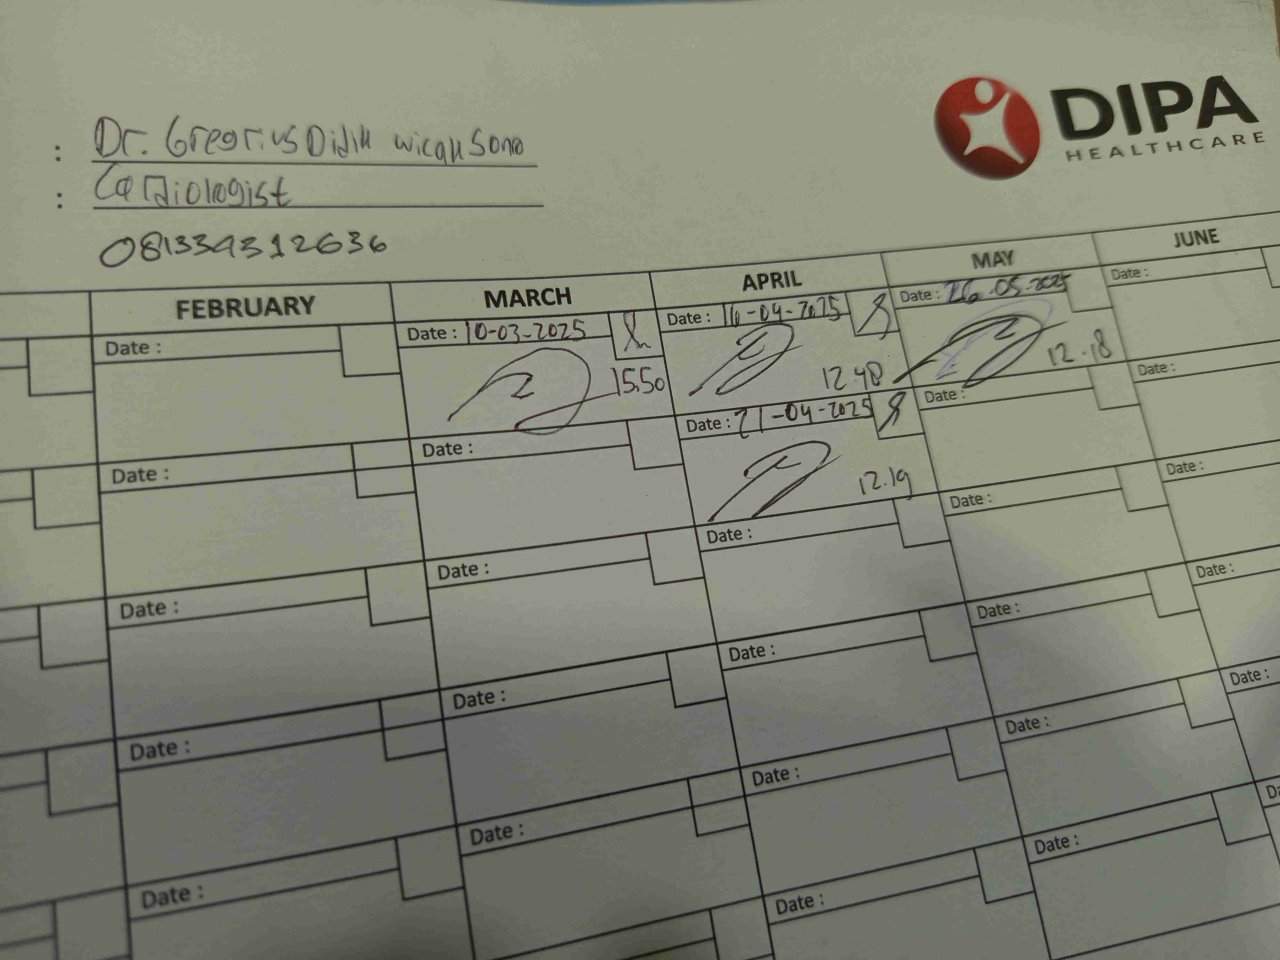 DIPA
HEALTHCARE
: Dr. Gregrius Didik wicaksono
: Cardiologist
081334312636
FEBRUARY MARCH APRIL MAY JUNE
Date : Date : 10-03-2025 Date : 16-04-2025 Date : 26-05-2025 Date :
15.50 12.48 12.18
Date : Date : Date : 21-04-2025 Date : Date :
12.19
Date : Date : Date : Date : Date :
Date : Date : Date : Date : Date :
Date : Date : Date : Date : Date :
Date : Date : Date :